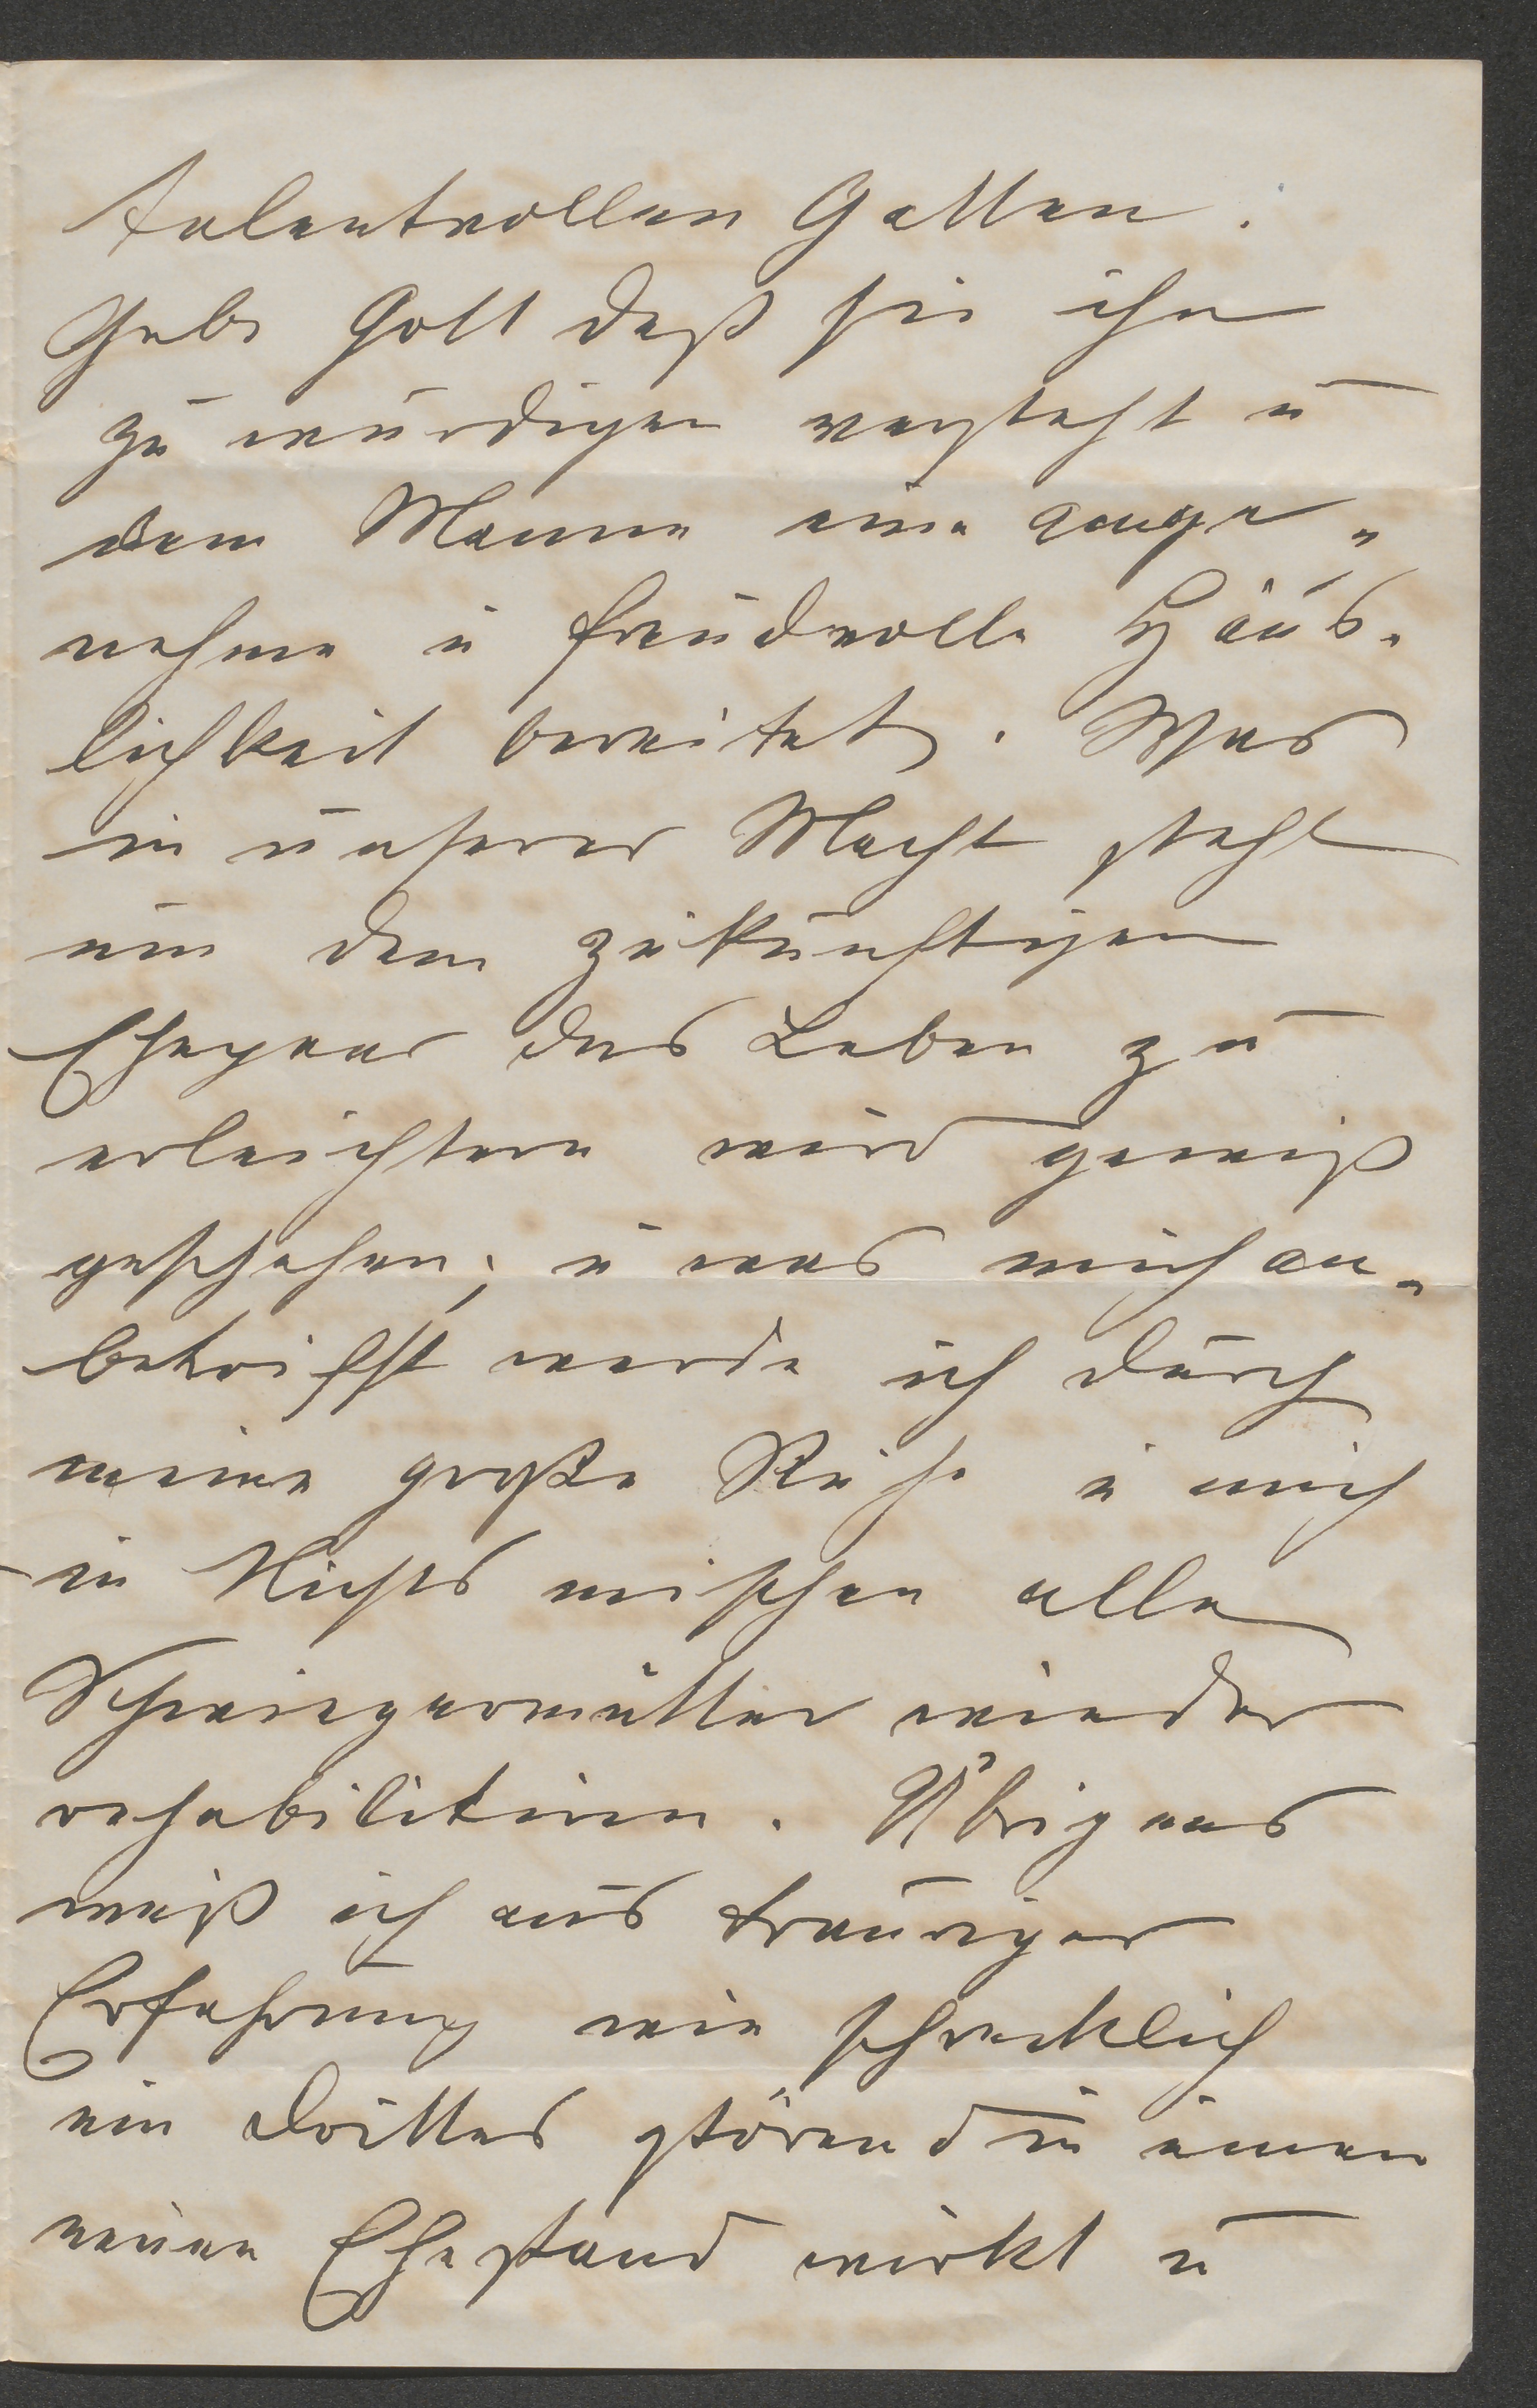 talentvollen Gatten.
Gebe Gott daß sie ihn
zu würdigen versteht u
dem Manne eine ange-
nehme u freudvolle Häus-
lichkeit bereitet. Was
in unserer Macht steht
um dem zukünftigen
Ehepaar das Leben zu
erleichtern wird gewiß
geschehen; u was mich an-
betrifft werde ich durch
meine große Ruhe u mich
in Nichts mischen alle
Schwiegermütter wieder
rehabilitiren. Übrigens
weiß ich aus trauriger
Erfahrung wie schrecklich
ein Drittes störend in einen
neuen Ehestand wirkt u